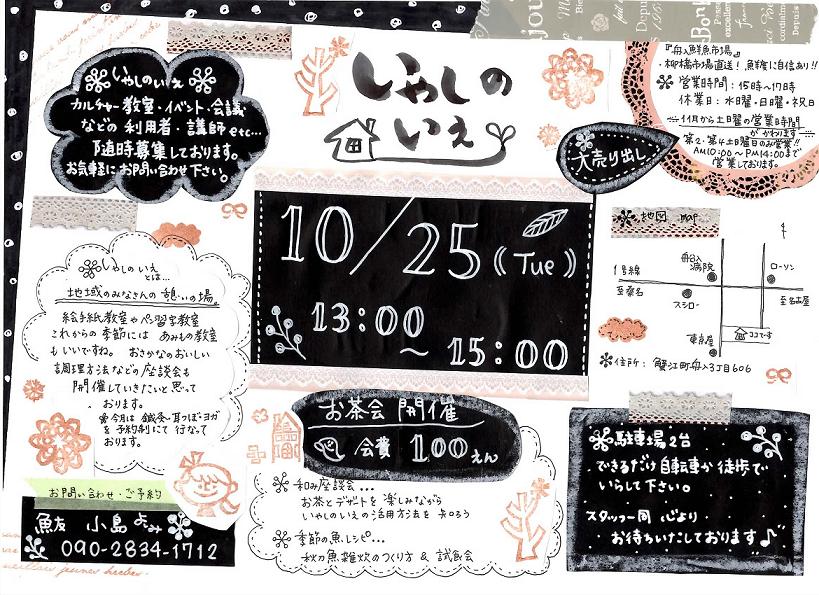 いやしの
いえ
いやしのいえ
カルチャー教室・イベント・会議
などの利用者・講師 etc...
随時募集しております。
お気軽にお問い合わせ下さい。
『舟入鮮魚市場』
・柳橋市場直送！鮮度に自信あり!!
営業時間：15時〜17時
休業日：水曜・日曜・祝日
11月から土曜の営業時間
がかわります
第2・第4土曜日のみ営業!!
AM10:00〜PM14:00まで
営業しております。
大売り出し
10/25 (Tue)
13:00
〜15:00
地図 map
1号線
至桑名
舟入
病院
ローソン
至名古屋
スシロー
東京屋
ココです
住所：蟹江町舟入3丁目606
いやしのいえ
とは...
地域のみなさんの憩いの場。
絵手紙教室やペン習字教室
これからの季節にはあみもの教室
もいいですね。おさかなのおいしい
調理方法などの座談会も
開催していきたいと思って
おります。
今月は鍼灸・耳つぼ・ヨガ
を予約制にて行なって
おります。
お茶会 開催
会費 100えん
和み座談会...
お茶とデザートを楽しみながら
いやしのいえの活用方法を知ろう
季節の魚レシピ...
秋刀魚雑炊のつくり方 & 試食会
駐車場2台
できるだけ自転車か徒歩で
いらして下さい。
スタッフ一同 心より
お待ちいたしております♪
お問い合わせ・ご予約
魚友 小島よみ
090-2834-1712